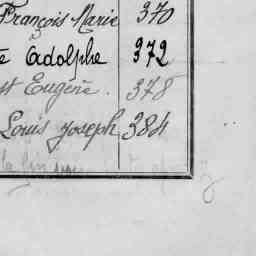 François Marie 370
Adolphe 372
st Eugène . 378
Louis Joseph 384